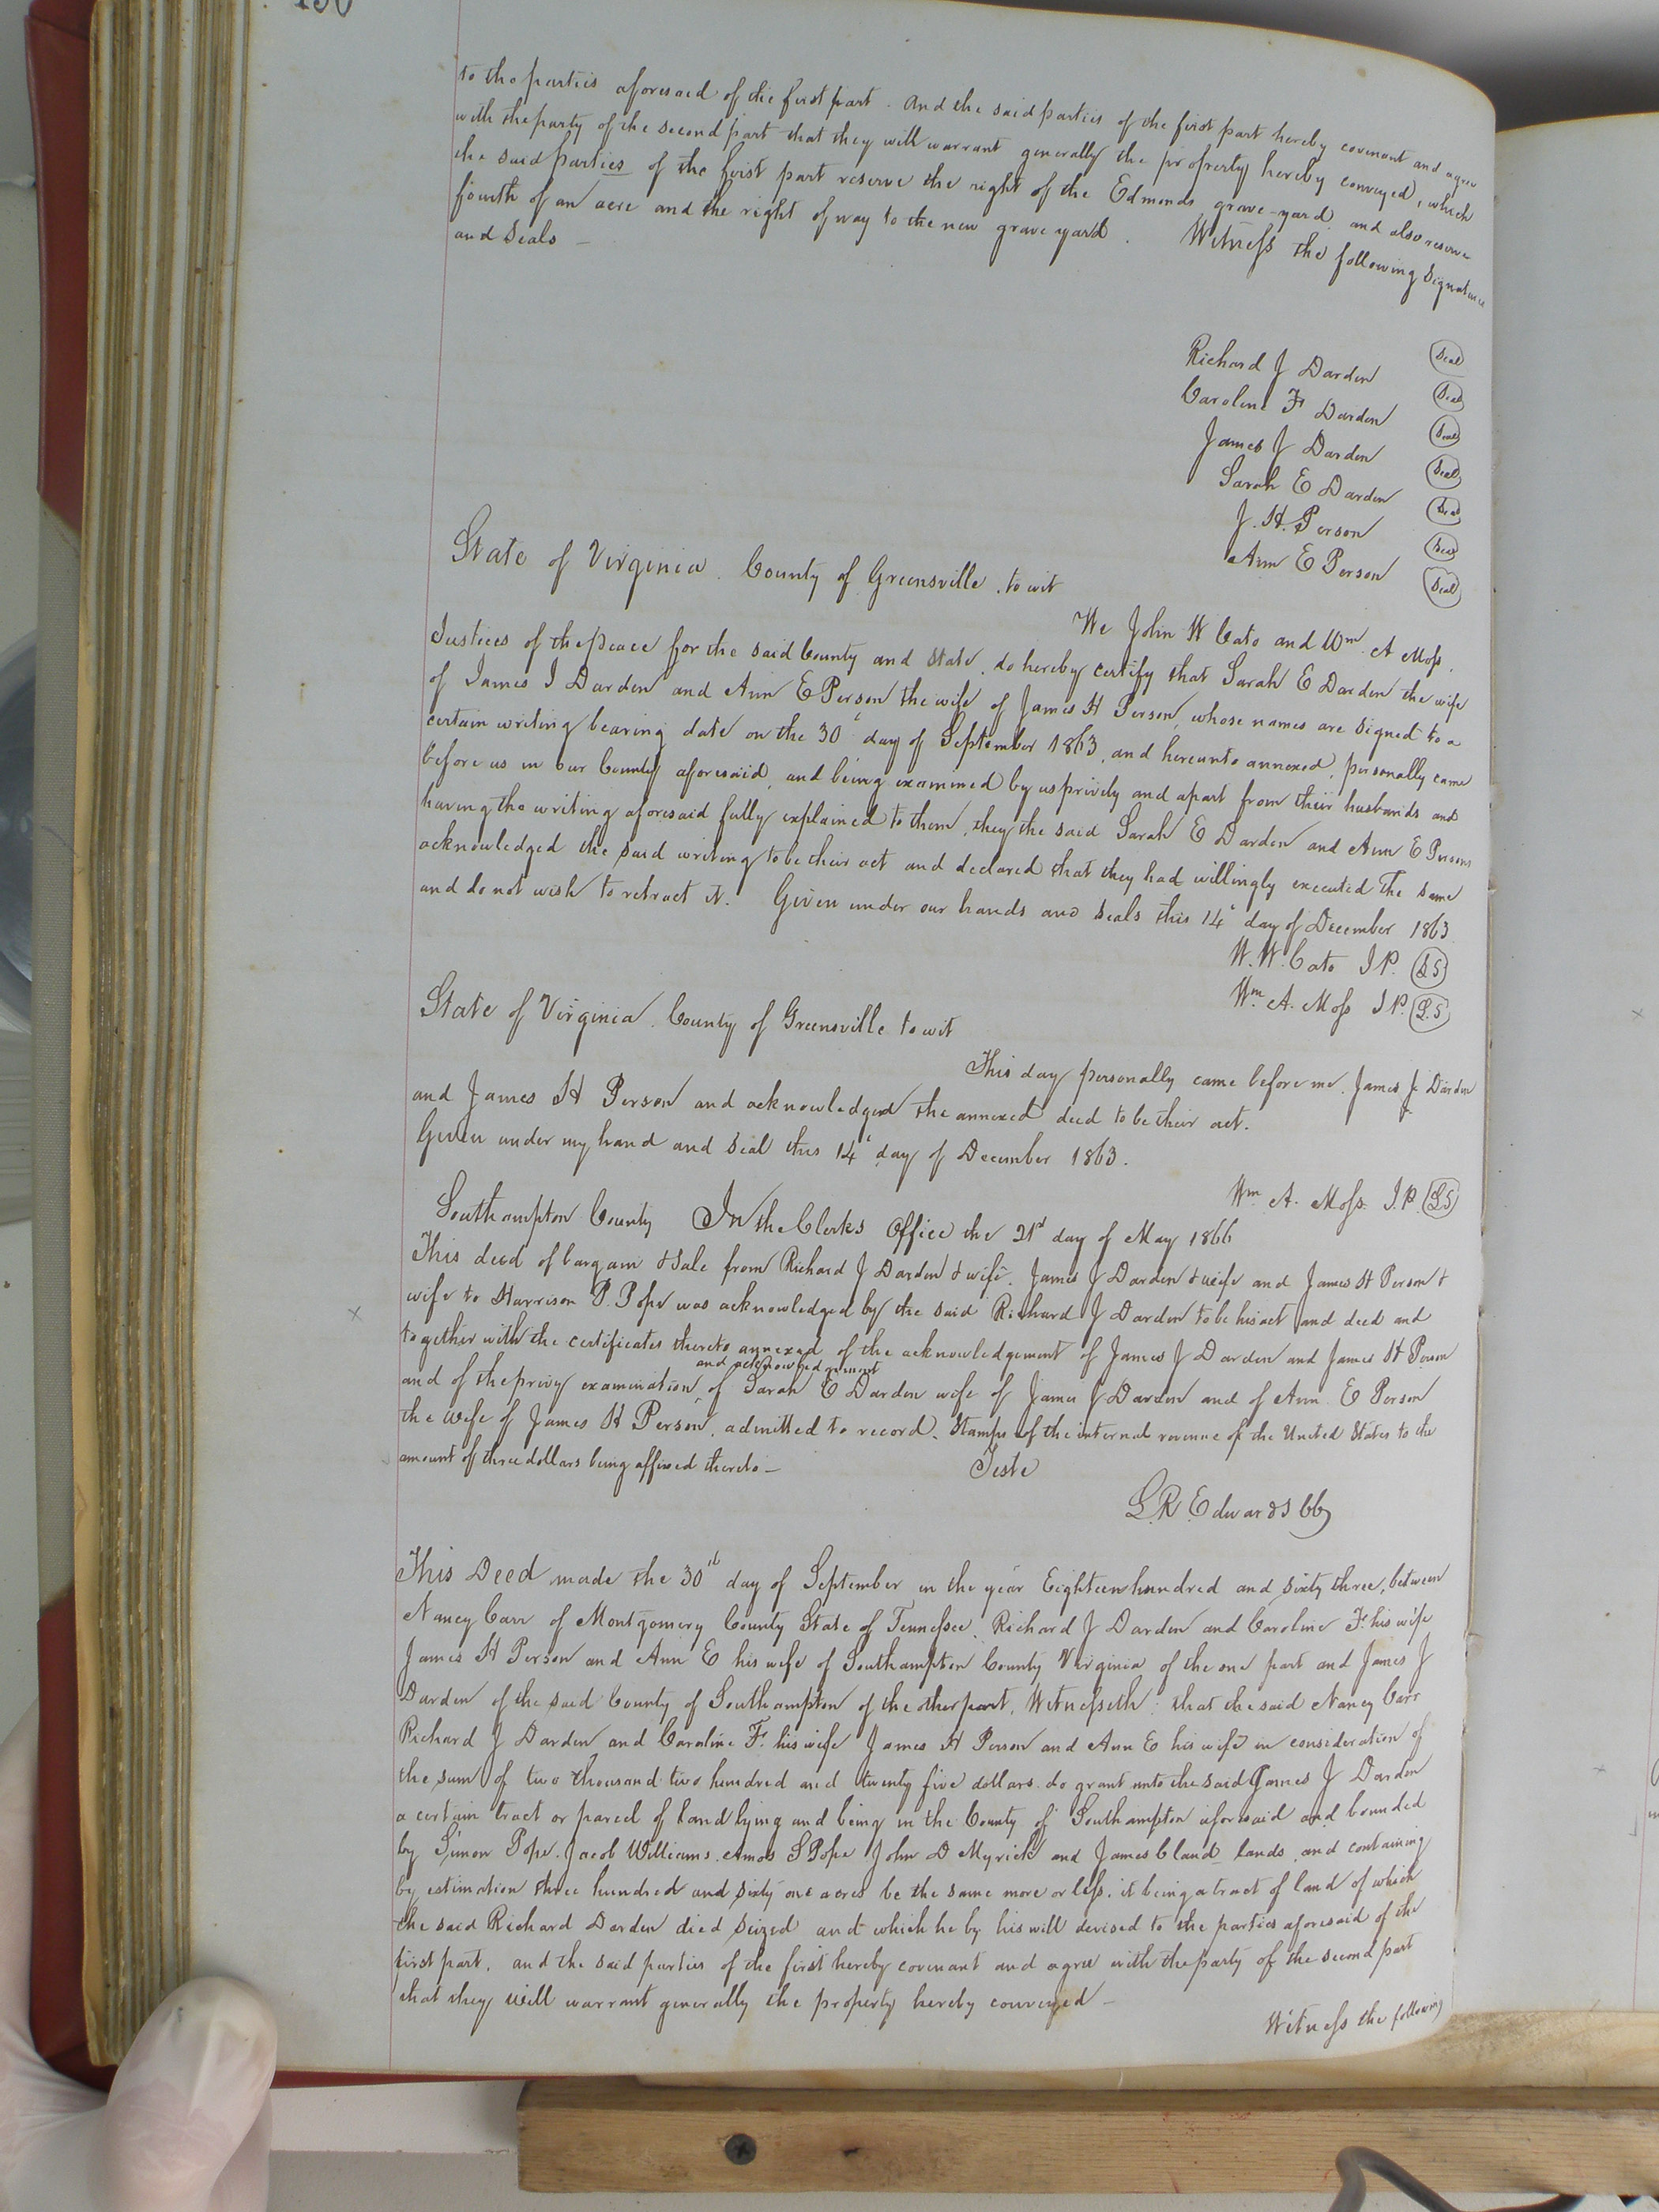 to the parties aforesaid of the first part. And the said parties of the first part hereby covenant and agree
with the party of the second part that they will warrant generally the property hereby conveyed, which
the said parties of the first part reserve the right of the Edmonds grave-yard and also reserve
fourth of an acre and the right of way to the new grave yard. Witness the following signatures
and Seals —
Richard J Darden Seal
Caroline F Darden Seal
James J Darden Seal
Sarah E Darden Seal
J. H. Person Seal
Ann E Person Seal
Seal
State of Virginia. County of Greensville. to wit
We John W Cato and Wm A Moss,
Justices of the Peace for the said County and State, do hereby certify that Sarah E Darden the wife
of James J Darden and Ann E Person the wife of James H Person, whose names are signed to a
certain writing bearing date on the 30 day of September 1863, and hereunto annexed, personally came
before us in our County aforesaid, and being examined by us privily and apart from their husbands and
having the writing aforesaid fully explained to them, they the said Sarah E Darden and Ann E Person
acknowledged the said writing to be their act and declared that they had willingly executed the same
and do not wish to retract it. Given under our hands and seals this 14 day of December 1863
W. W. Cato J P. LS
Wm A. Moss J P. L.S
State of Virginia. County of Greensville to wit
This day personally came before me. James J. Darden
and James H Person and acknowledged the annexed deed to be their act.
Given under my hand and seal this 14 day of December 1863.
Wm A. Moss. J.P. LS
Southampton County In the Clerks Office the 21st day of May 1866
This deed of bargain & Sale from Richard J Darden & wife. James J Darden & wife and James H Person &
wife to Harrison P. Pope was acknowledged by the said Richard J Darden to be his act and deed and
together with the certificates thereto annexed of the acknowledgement of James J Darden and James H Person
and acknowledgement
and of the privy examination of Sarah E Darden wife of James J Darden and of Ann E Person
the wife of James H Person, admitted to record. Stamps of the internal revenue of the United States to the
amount of three dollars being affixed thereto —
Teste
L. R. Edwards CC
This Deed made the 30th day of September in the year Eighteen hundred and sixty three, between
Nancy Carr of Montgomery County State of Tennessee, Richard J Darden and Caroline F. his wife
James H Person and Ann E his wife of Southampton County Virginia of the one part and James J
Darden of the said County of Southampton of the other part, Witnesseth: that the said Nancy Carr
Richard J Darden and Caroline F. his wife James H Person and Ann E his wife in consideration of
the sum of two thousand two hundred and twenty five dollars do grant unto the said James J Darden
a certain tract or parcel of land lying and being in the County of Southampton aforesaid and bounded
by Simon Pope. Jacob Williams. Amos S Pope John D Myrick and James Bland lands and containing
by estimation three hundred and sixty one acres be the same more or less. it being a tract of land of which
the said Richard Darden died seized and which he by his will devised to the parties aforesaid of the
first part, and the said parties of the first hereby covenant and agree with the party of the second part
that they will warrant generally the property hereby conveyed —
Witness the following